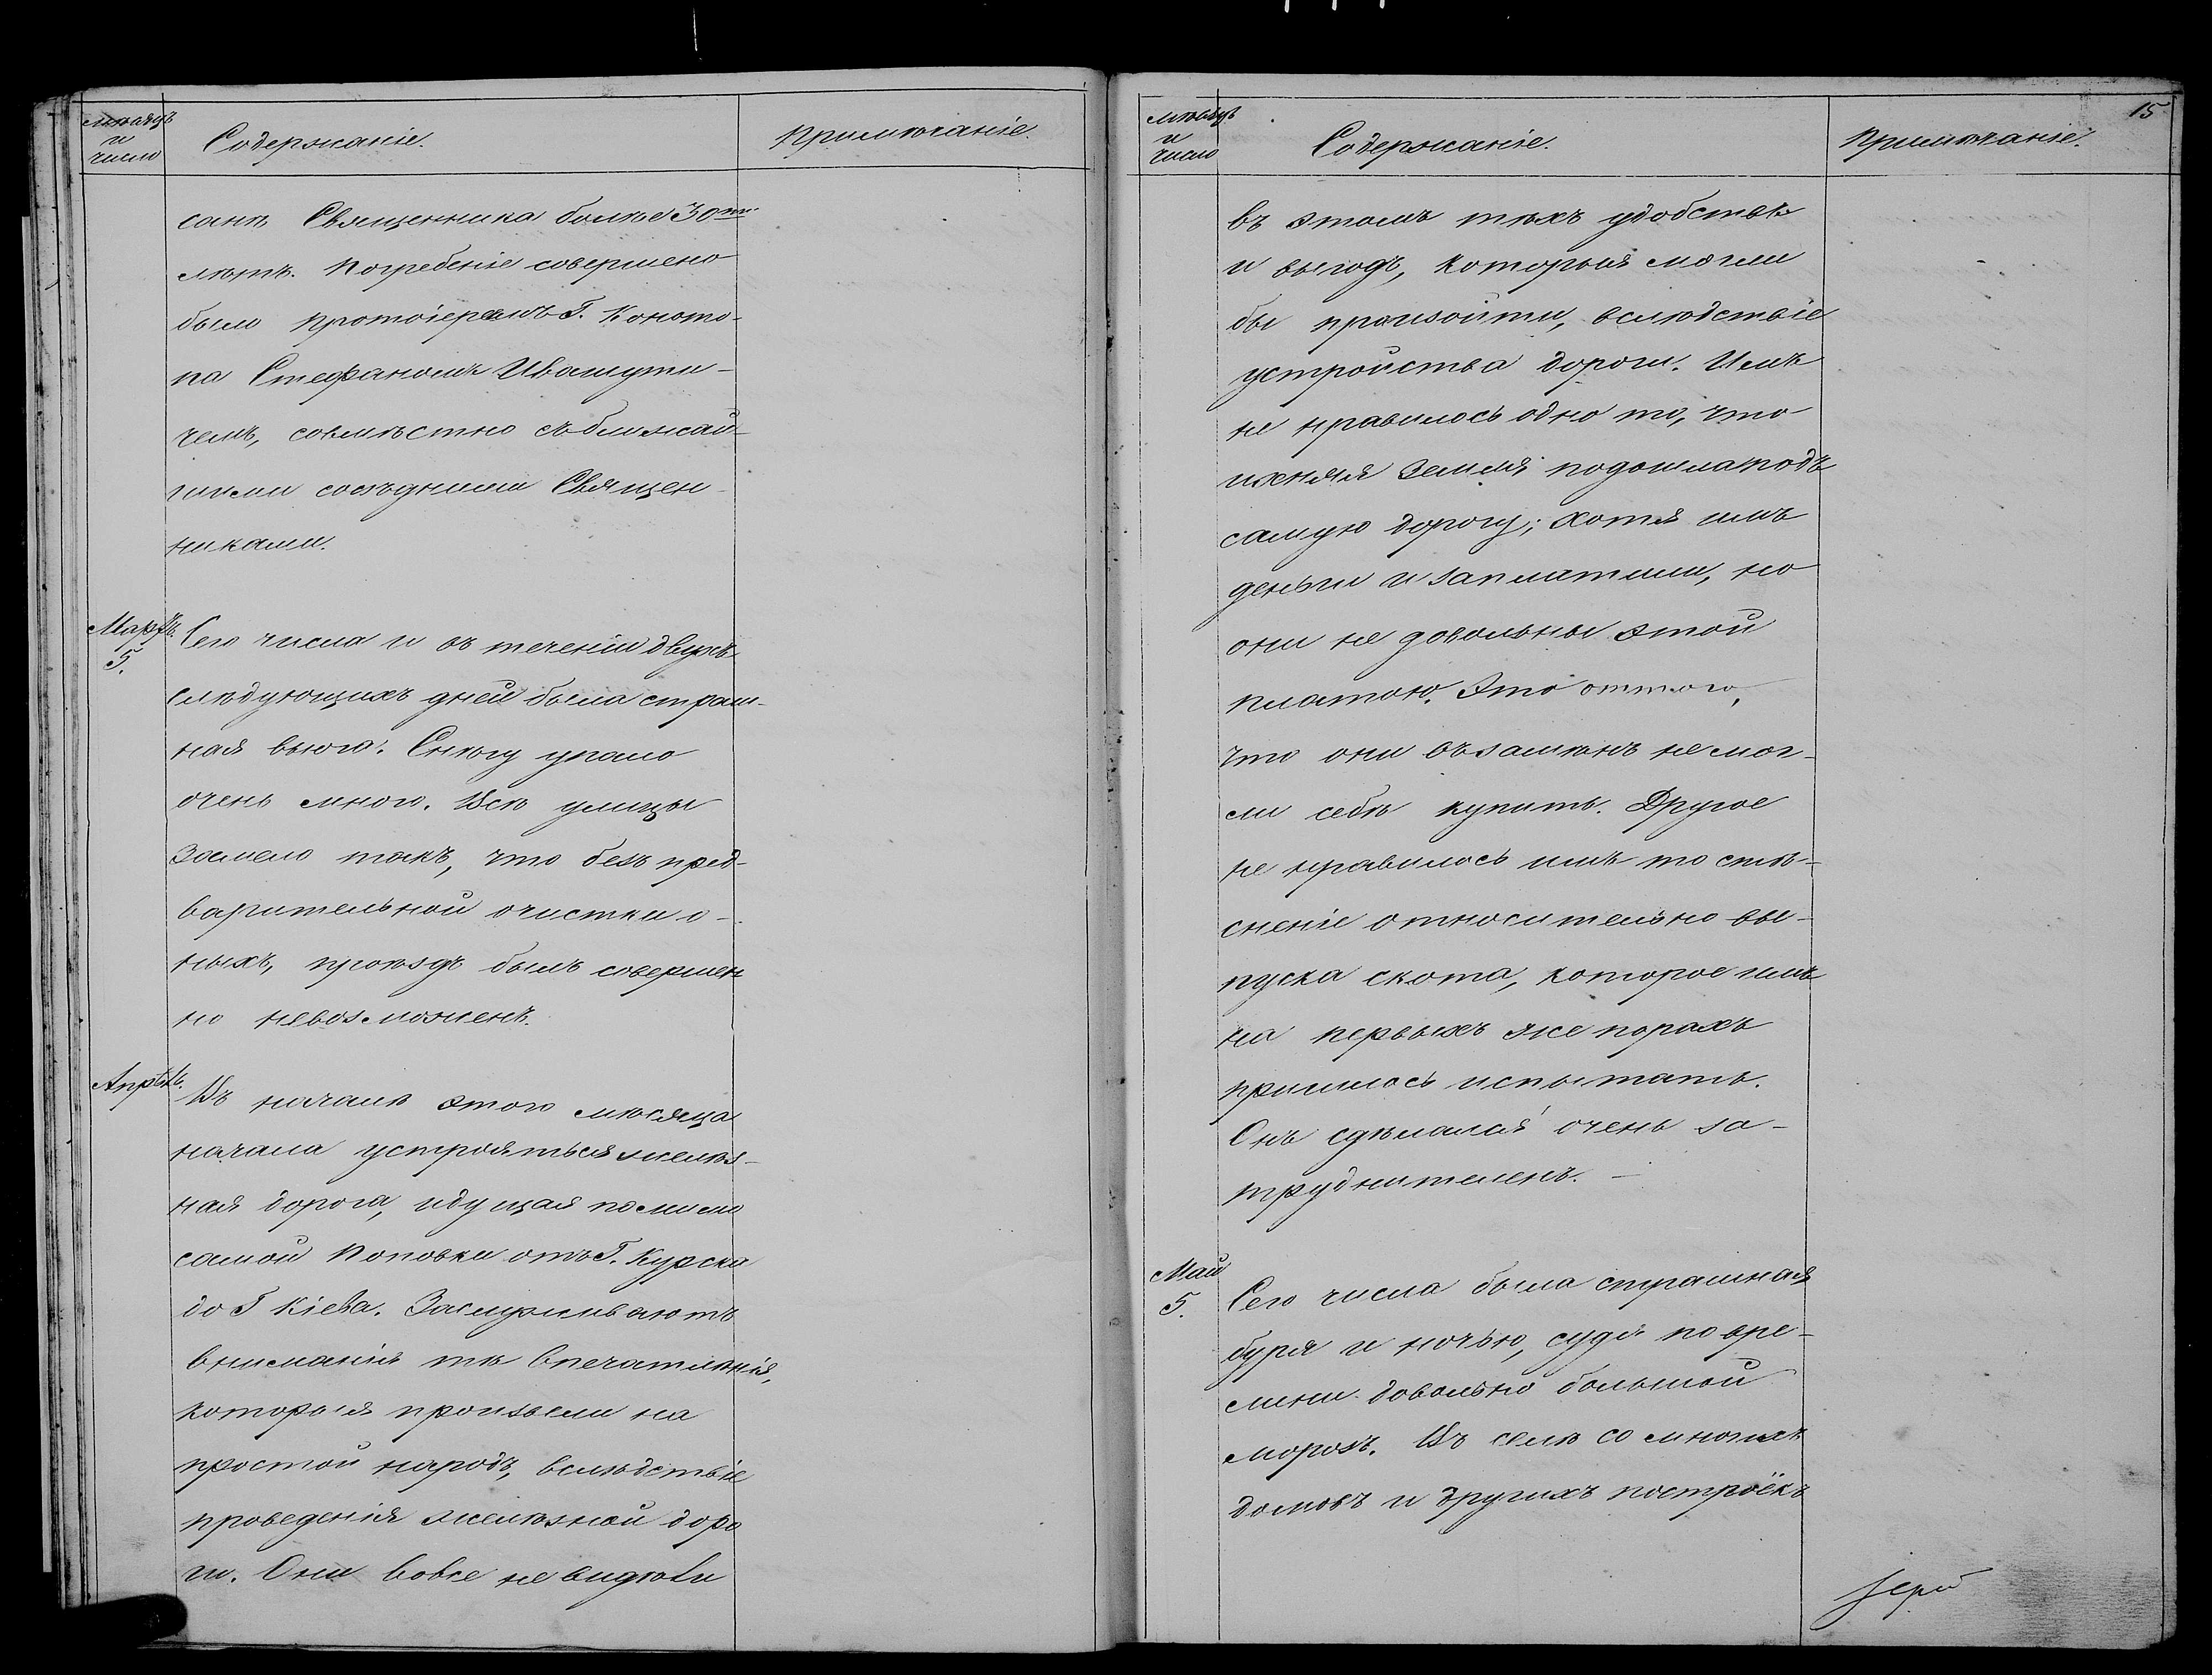 Мѣсяцъ
и
число
Содержаніе.
Примѣчаніе.
санѣ Священника болѣе 30ти
лѣтъ. Погребеніе совершено
было протоіереемъ Г. Коното-
па Стефаномъ Ивашути-
чемъ, совмѣстно съ ближай-
шими сосѣдними Священ-
никами.
Мартъ.
5.
Сего числа и въ теченіи двухъ
слѣдующихъ дней была страш-
ная вьюга. Снѣгу упало
очень много. Всѣ улицы
замело такъ, что безъ пред-
варительной очистки о-
ныхъ, проѣздъ былъ совершен
но невозможенъ.
Апрѣль.
Въ началѣ этого мѣсяца
начала устрояться желѣз-
ная дорога, идущая помимо
самой Поповки отъ Г. Курска
до Г Кіева. Заслуживаютъ
вниманія тѣ впечатлѣнія,
которыя произвели на
простой народъ, вслѣдствіе
проведенія желѣзной доро
ги. Они вовсе не видѣли
15
Мѣсяцъ
и
число
Содержаніе.
Примѣчаніе.
въ этомъ тѣхъ удобствъ
и выгодъ, которыя могли
бы произойти, вслѣдствіе
устройства дороги. Имъ
не нравилось одно то, что
ихняя земля подошла подъ
самую дорогу; хотя имъ
деньги и заплатили, но
они не довольны этой
платою. Это оттого,
что они взамѣнъ не мог-
ли себѣ купить. Другое
не нравилось имъ то стѣ-
сненіе относительно вы-
пуска скота, которое имъ
на первыхъ же порахъ
пришлось испытать.
Онъ сдѣлался очень за-
труднителенъ. —
Май
5.
Сего числа была страшная
буря и ночью, судя по вре-
мени довольно большой
морозъ. Въ селѣ со многихъ
домовъ и другихъ построекъ
Іерей